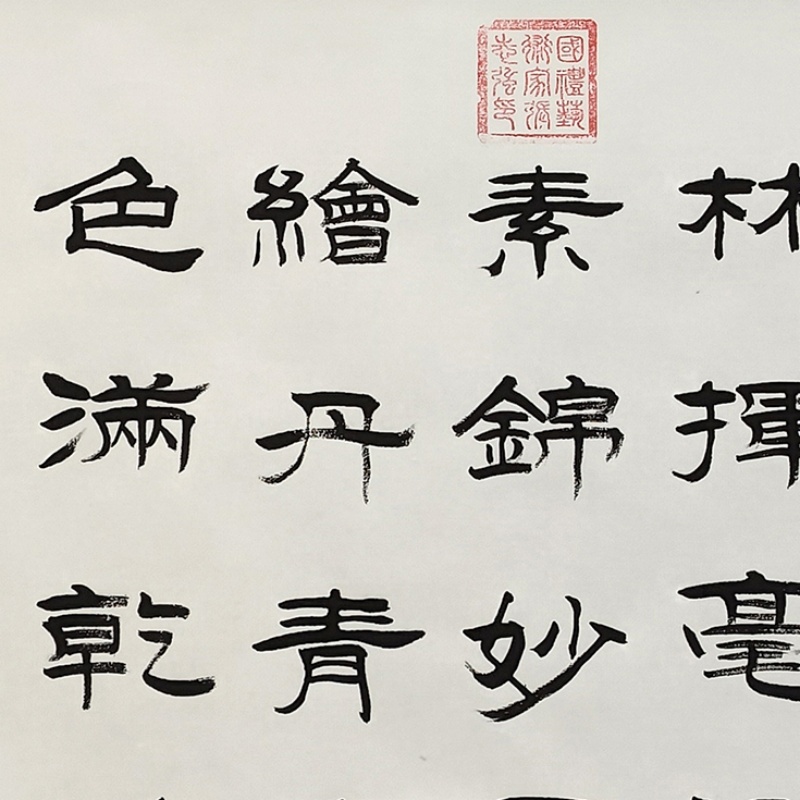 國禮藝
術家張
志強印
林揮毫
素錦妙
繪丹青
色滿乾